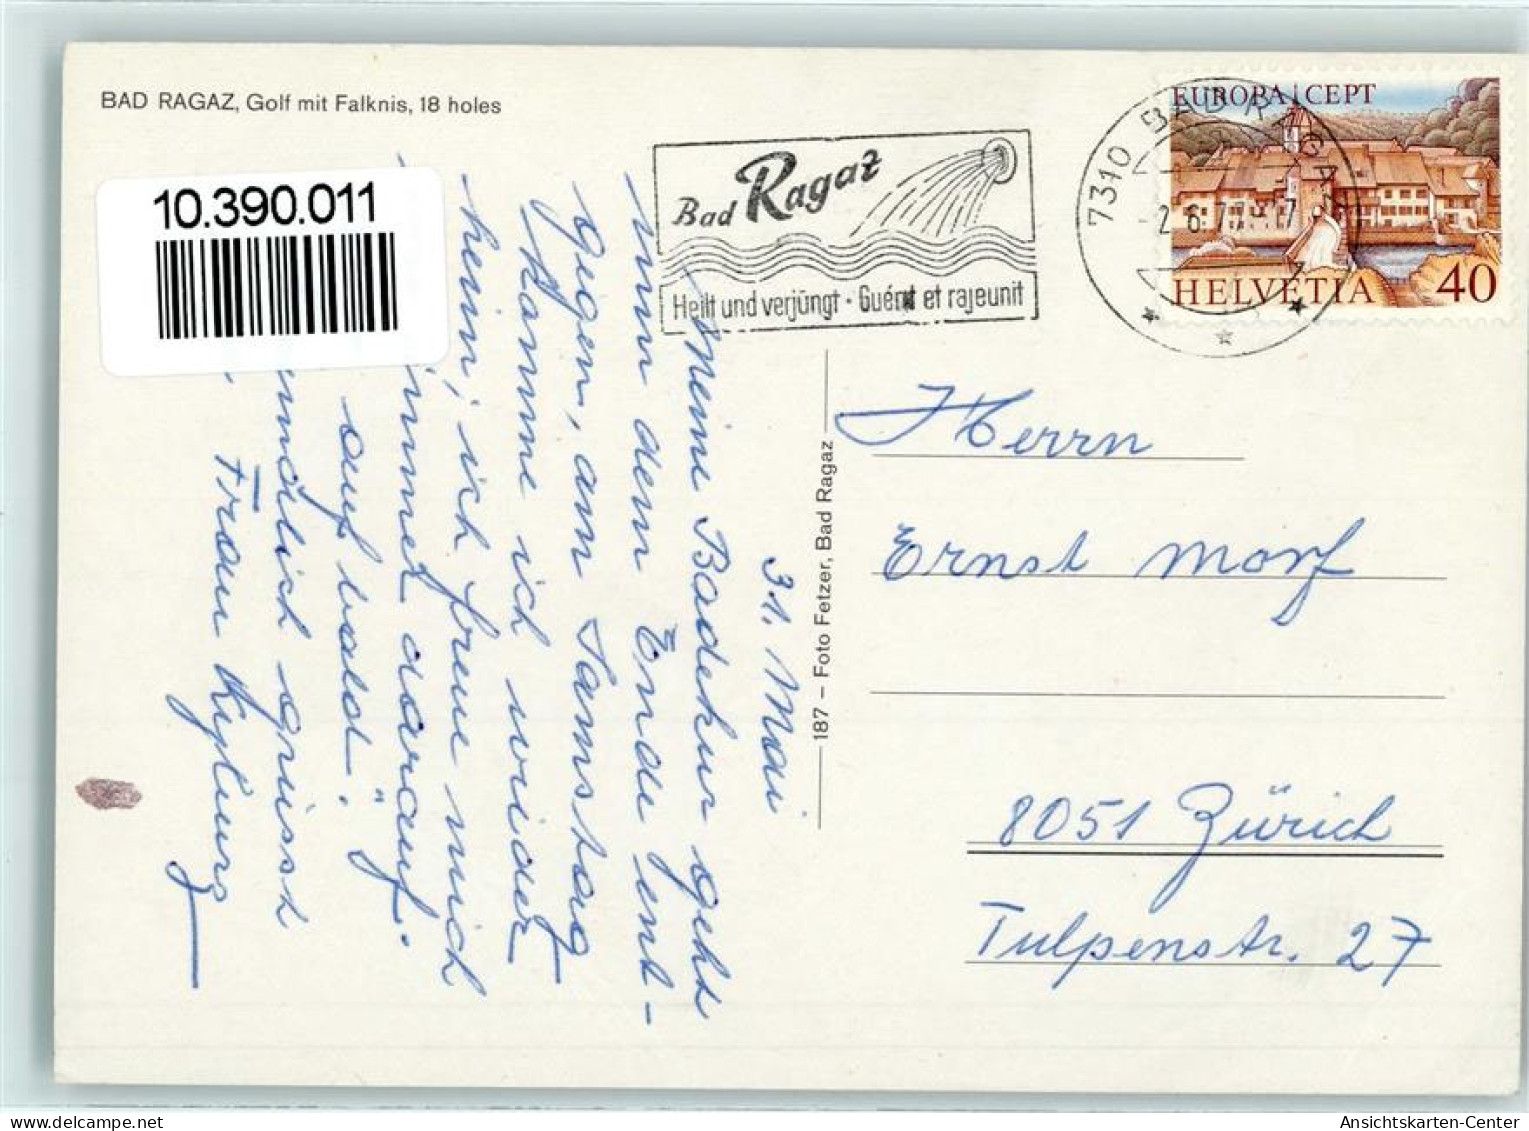 BAD RAGAZ, Golf mit Falknis, 18 holes
10.390.011
Bad Ragaz
Heilt und verjüngt · Guérit et rajeunit
7310 BAD RAGAZ
-2.6.77-17
EUROPA CEPT
HELVETIA 40
31. Mai
Meine Badekur geht
nun dem Ende ent-
gegen, am Samstag
komme ich wieder
heim, ich freue mich
darauf.
auf bald.
grüsst
Frau
187 – Foto Fetzer, Bad Ragaz
Herrn
Ernst Morf
8051 Zürich
Tulpenstr. 27
Ansichtskarten-Center